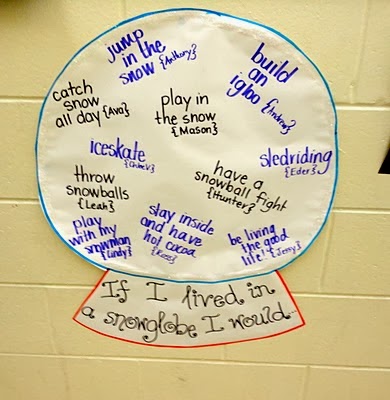 jump
in the
snow {Anthony}
build
an
igloo {Andrew}
catch
snow
all day {Ava}
play in
the snow
{Mason}
iceskate
sledriding
{Eder}
throw
snowballs
{Leah}
have a
snowball fight
{Hunter}
play
with my
snowman
{Cindy}
stay inside
and have
hot cocoa
{Ross}
be living
the good
life! {Jerry}
If I lived in
a snowglobe I would...